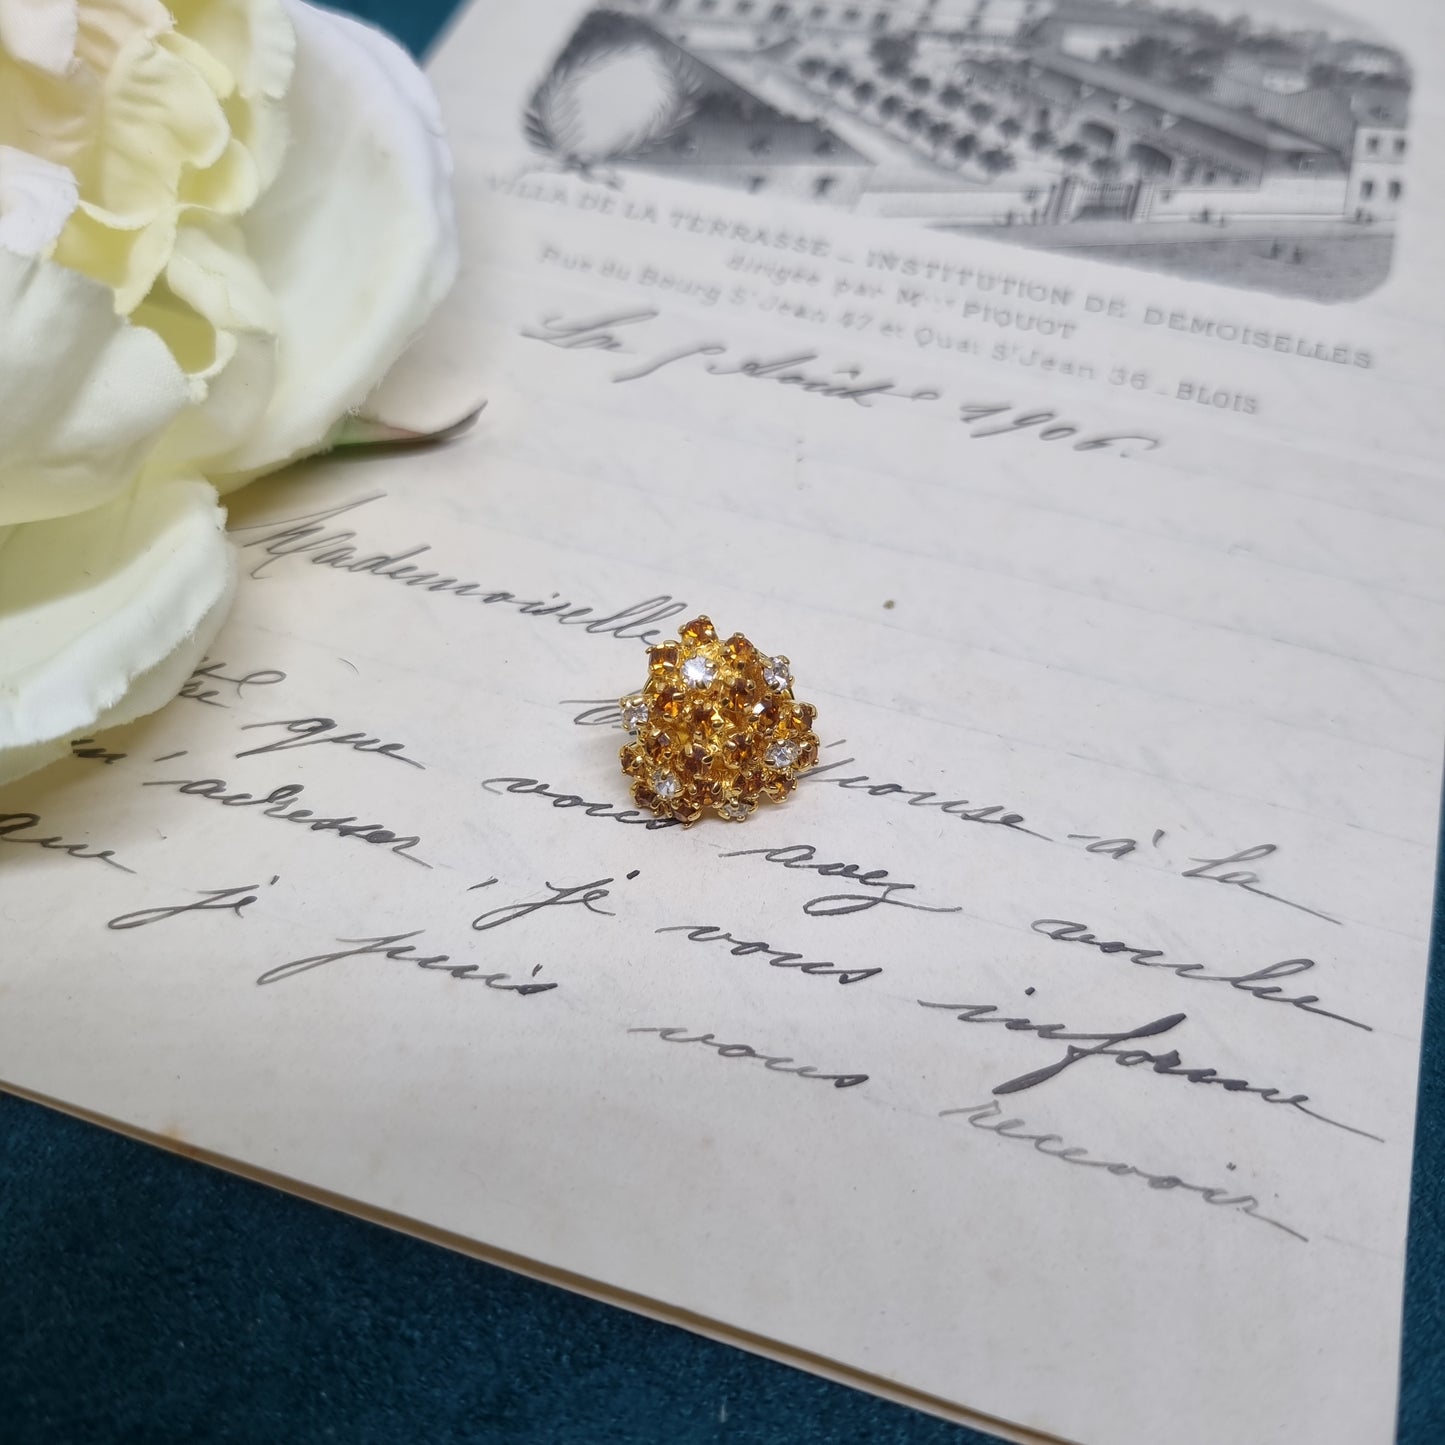 VILLA DE LA TERRASSE _ INSTITUTION DE DEMOISELLES
dirigée par Mlle PIQUOT
Rue du Bourg St Jean 47 et Quai St Jean 36 _ BLOIS
Août 1906.
Mademoiselle
réponse à la
que vous avez voulu
m'adresser, je vous informe
que je puis vous recevoir